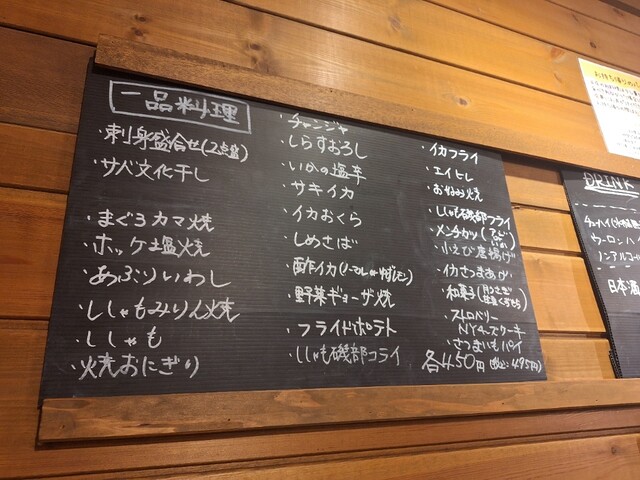 一品料理
・刺身盛合せ(2点盛)
・サバ文化干し
・まぐろカマ焼
・ホッケ塩焼
・あぶりいわし
・ししゃもみりん焼
・ししゃも
・焼おにぎり
・チャンジャ
・しらすおろし
・いかの塩辛
・サキイカ
・イカおくら
・しめさば
・酢イカ(ノーマルor
・野菜ギョーザ焼
・フライドポテト
・ししゃも磯部コライ
・イカフライ
・エイヒレ
・お好み焼
・ししゃも磯部フライ
・メンチカツ(
・小えび唐揚げ
・イカさつまあげ
・和菓子(
・ストロベリー
NYチーズケーキ
・さつまいもパイ
各450円(税込:495円)
DRINK
ウーロンハ
ノンアルコール
日本酒